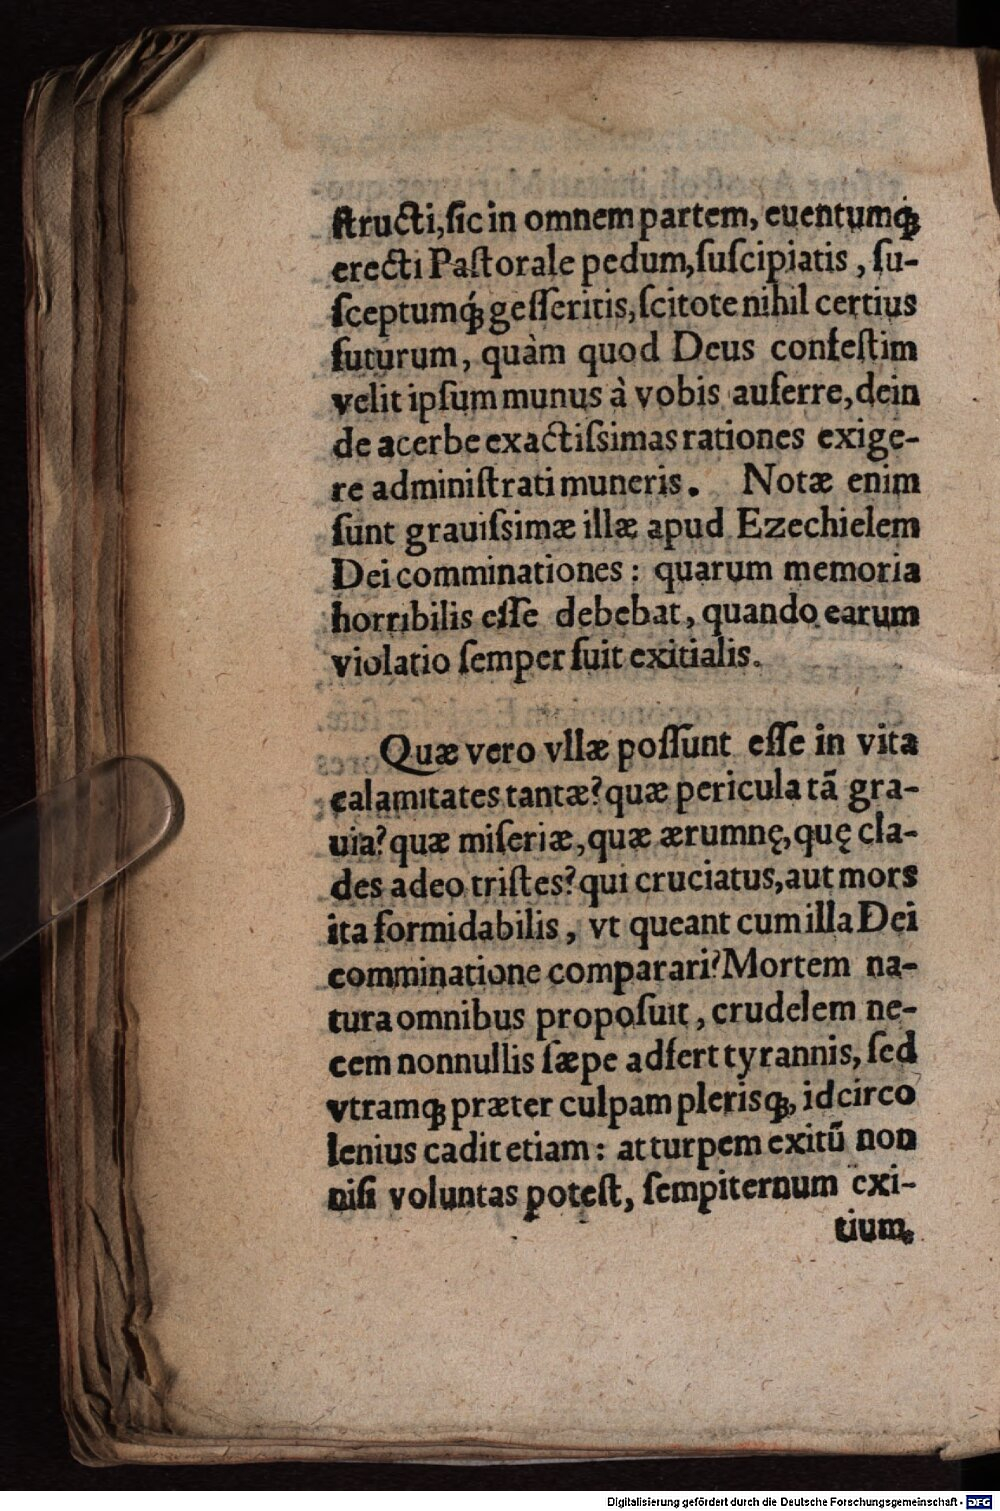 ſtructi, ſic in omnem partem, euentumq́;
erecti Paſtorale pedum, ſuſcipiatis, ſu-
ſceptumq́; geſſeritis, ſcitote nihil certius
futurum, quàm quod Deus confeſtim
velit ipſum munus à vobis auferre, dein
de acerbe exactiſsimas rationes exige-
re adminiſtrati muneris. Notæ enim
ſunt grauiſsimæ illæ apud Ezechielem
Dei comminationes: quarum memoria
horribilis eſſe debebat, quando earum
violatio ſemper fuit exitialis.
Quæ vero vllæ poſſunt eſſe in vita
calamitates tantæ? quæ pericula tã gra-
uia? quæ miſeriæ, quæ ærumnę, quę cla-
des adeo triſtes? qui cruciatus, aut mors
ita formidabilis, vt queant cum illa Dei
comminatione comparari? Mortem na-
tura omnibus propoſuit, crudelem ne-
cem nonnullis ſæpe adfert tyrannis, ſed
vtramq; præter culpam plerisq;, idcirco
lenius cadit etiam: at turpem exitũ non
niſi voluntas poteſt, ſempiternum exi-
tium,
Digitalisierung gefördert durch die Deutsche Forschungsgemeinschaft - DFG